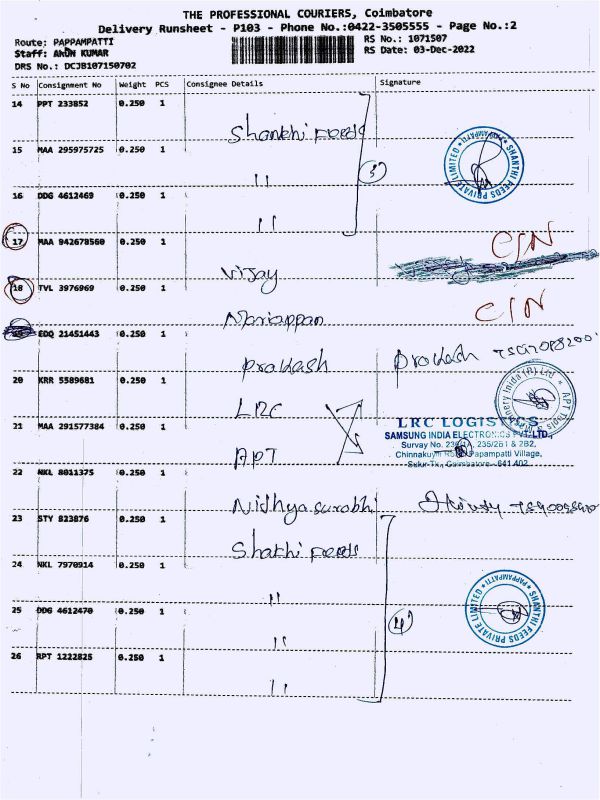 THE PROFESSIONAL COURIERS, Coimbatore
Delivery Runsheet - P103 - Phone No.:0422-3505555 - Page No.:2
Route: PAPPAMPATTI
Staff: ARUN KUMAR
DRS No.: DCJB107150702
RS No.: 1071507
RS Date: 03-Dec-2022
S No Consignment No Weight PCS Consignee Details Signature
14 PPT 233852 0.250 1 Shanthi Feeds
15 MAA 295975725 0.250 1 "
3
16 DDG 4612469 0.250 1 "
SHANTHI FEEDS PRIVATE LIMITED * PAPPAMPATTI *
17 MAA 942678560 0.250 1 Vijay
C/N
18 TVL 3976969 0.250 1 Mariappan
C/N
19 EDQ 21451443 0.250 1 Prakash Prakash
20 KRR 5589681 0.250 1 LRC
21 MAA 291577384 0.250 1 APT
LRC LOGISTICS
SAMSUNG INDIA ELECTRONICS PVT. LTD.,
235/2B1 & 2B2,
Papampatti Village,
Sulur-Tk., Coimbatore - 641 402.
22 NKL 8011375 0.250 1 Nidhyasurabhi
23 STY 823876 0.250 1 Shakhi Feeds
24 NKL 7970914 0.250 1 "
25 DDG 4612470 0.250 1 "
4
26 RPT 1222825 0.250 1 "
SHANTHI FEEDS PRIVATE LIMITED * PAPPAMPATTI *